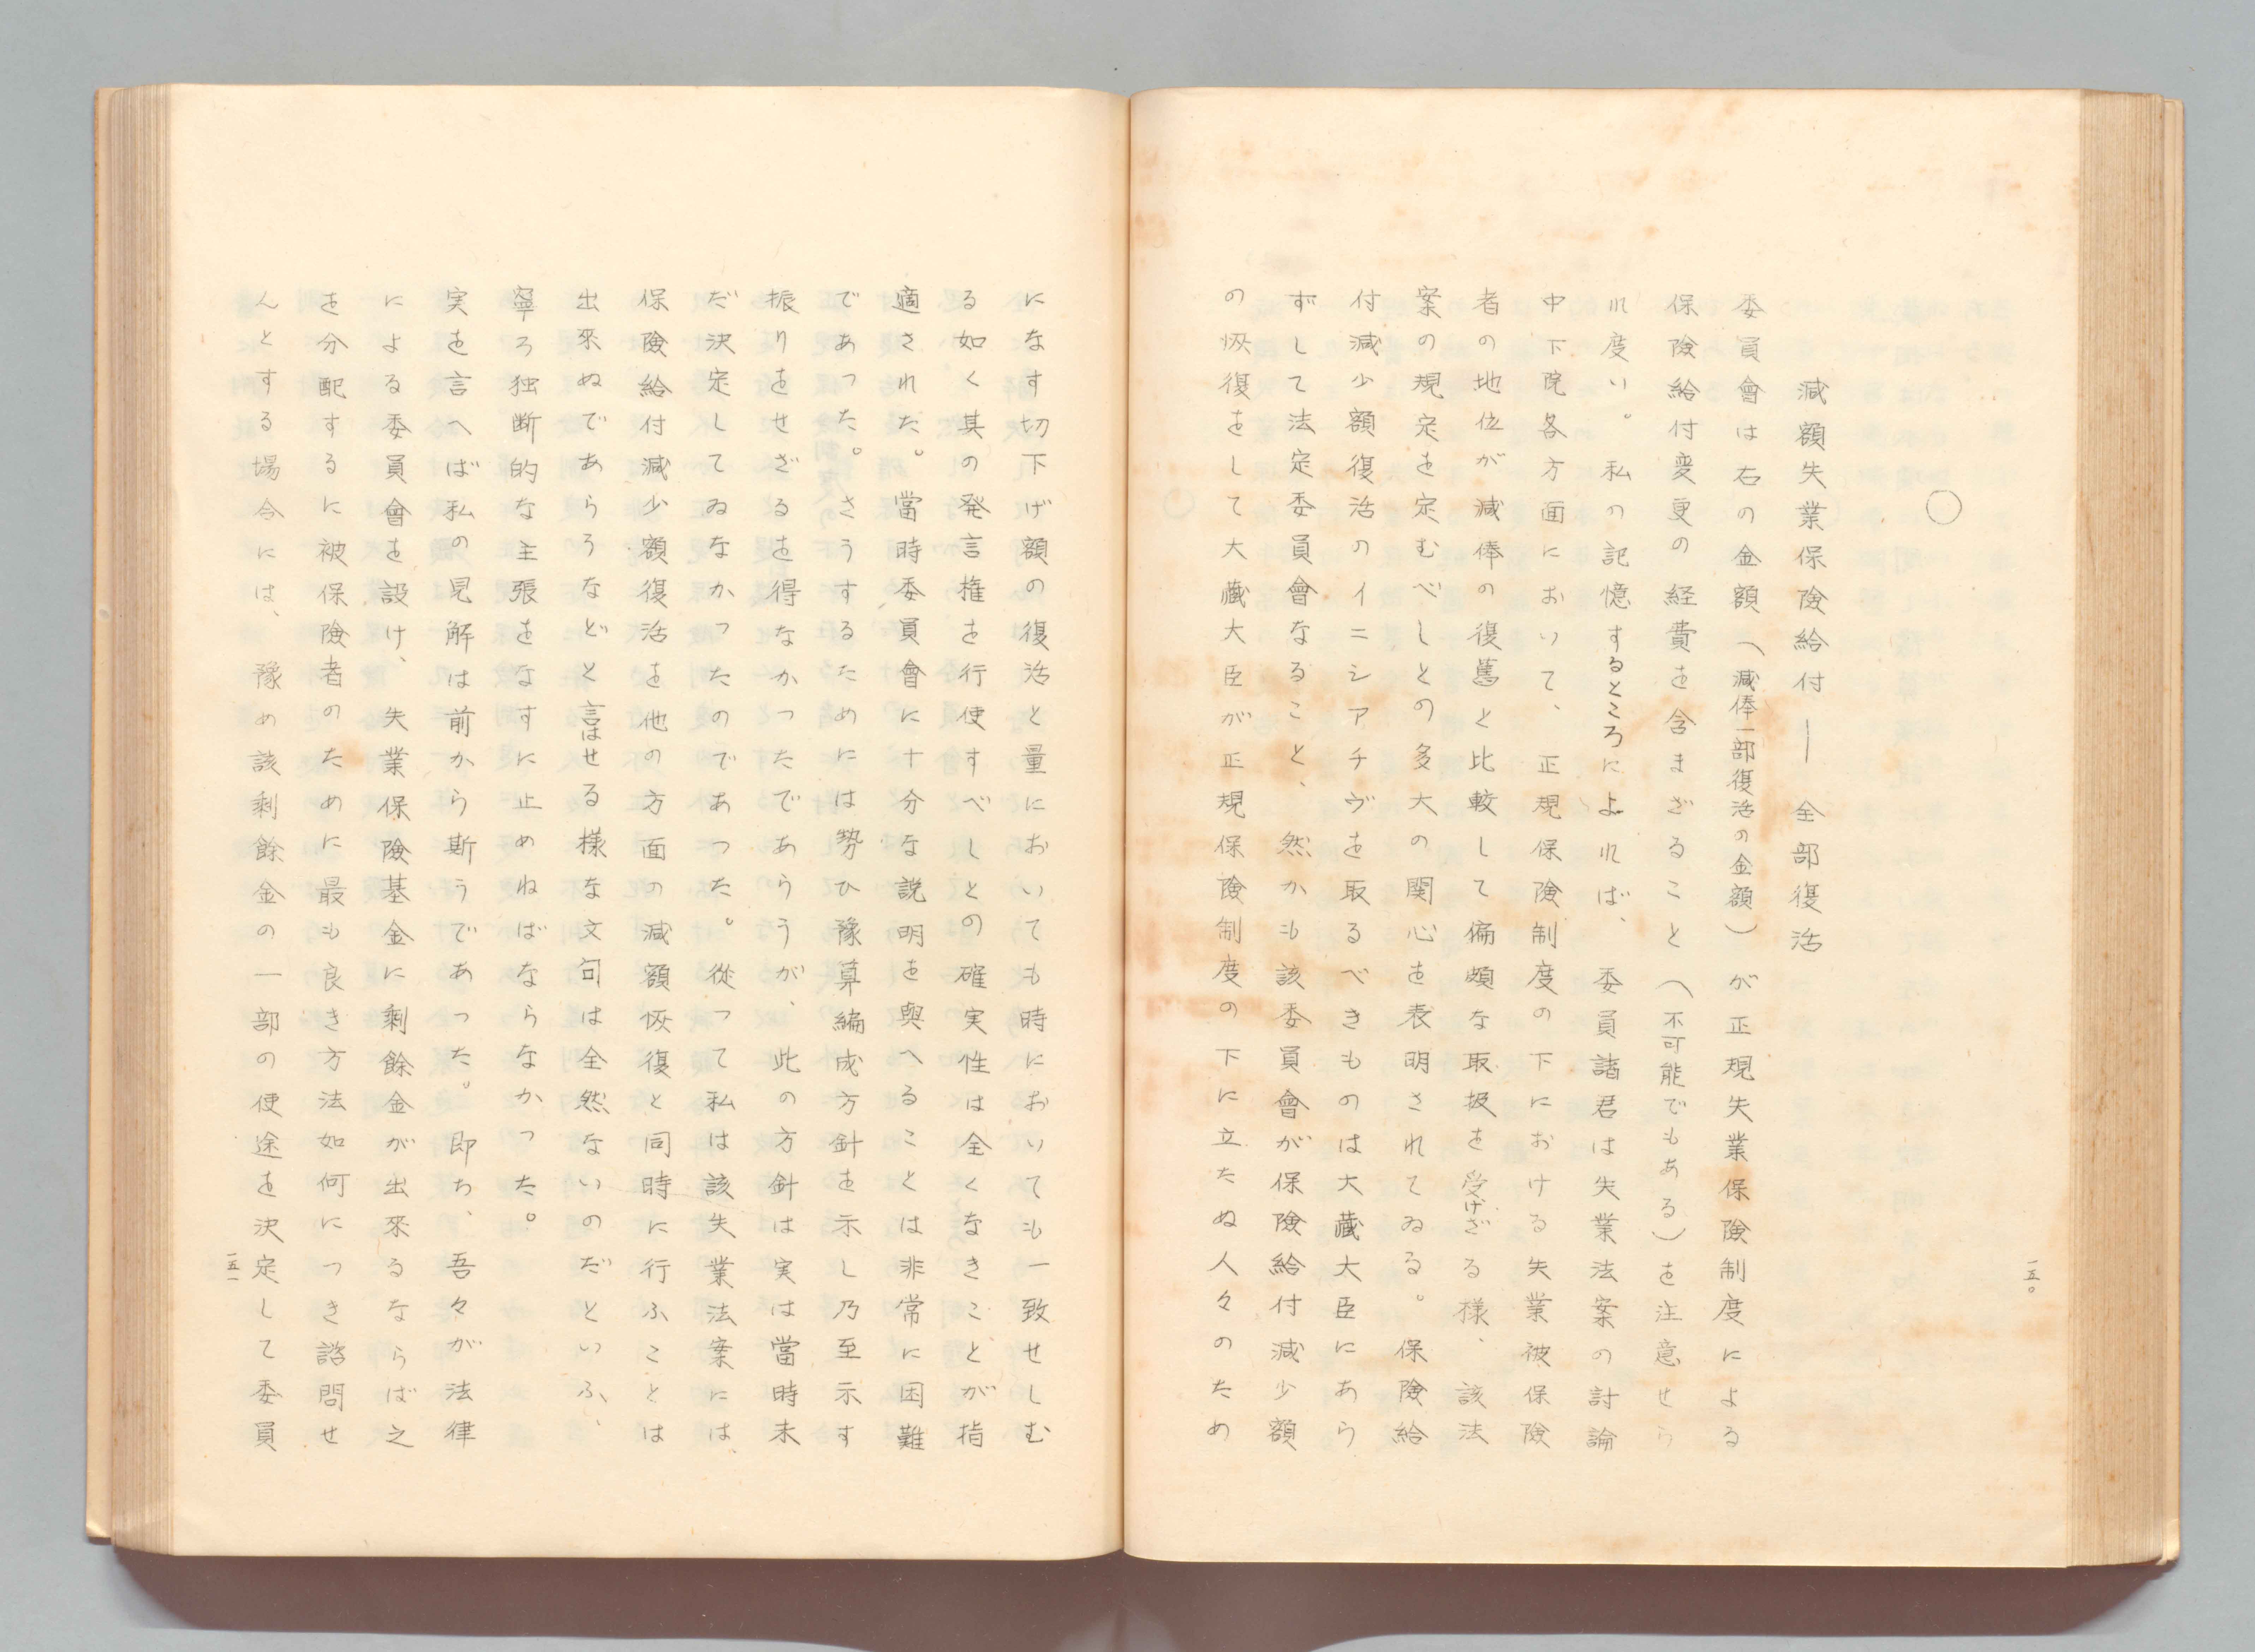 一五〇
○
減額失業保険給付―全部復活
委員會は右の金額（減俸一部復活の金額）が正規失業保険制度による
保険給付変更の経費を含まざること（不可能でもある）を注意せら
れ度い。私の記憶するところによれば、委員諸君は失業法案の討論
中下院各方面において、正規保険制度の下における失業被保険
者の地位が減俸の復舊と比較して偏頗な取扱を受けざる様、該法
案の規定を定むべしとの多大の関心を表明されてゐる。保険給
付減少額復活のイニシアチヴを取るべきものは大藏大臣にあら
ずして法定委員會なること、然かも該委員會が保険給付減少額
の恢復をして大藏大臣が正規保険制度の下に立たぬ人々のため
になす切下げ額の復活と量においても時においても一致せしむ
る如く其の発言権を行使すべしとの確実性は全くなきことが指
適された。當時委員會に十分な説明を與へることは非常に困難
であった。さうするためには勢ひ豫算編成方針を示し乃至示す
振りをせざるを得なかつたであらうが、此の方針は実は當時未
だ決定してゐなかつたのであつた。從って私は該失業法案には、
保険給付減少額復活を他の方面の減額恢復と同時に行ふことは
出來ぬであらうなどと言はせる様な文句は全然ないのだといふ、
寧ろ独断的な主張をなすに止めねばならなかつた。
実を言へば私の見解は前から斯うであった。即ち、吾々が法律
による委員會を設け、失業保険基金に剰餘金が出來るならば之
を分配するに被保険者のために最も良き方法如何につき諮問せ
んとする場合には、豫め該剰餘金の一部の使途を決定して委員
一五一